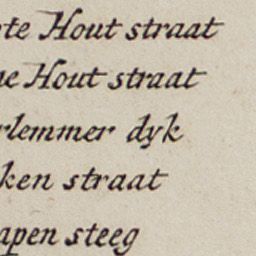 te Hout straat
e Hout straat
rlemmer dyk
ken straat
apen steeg